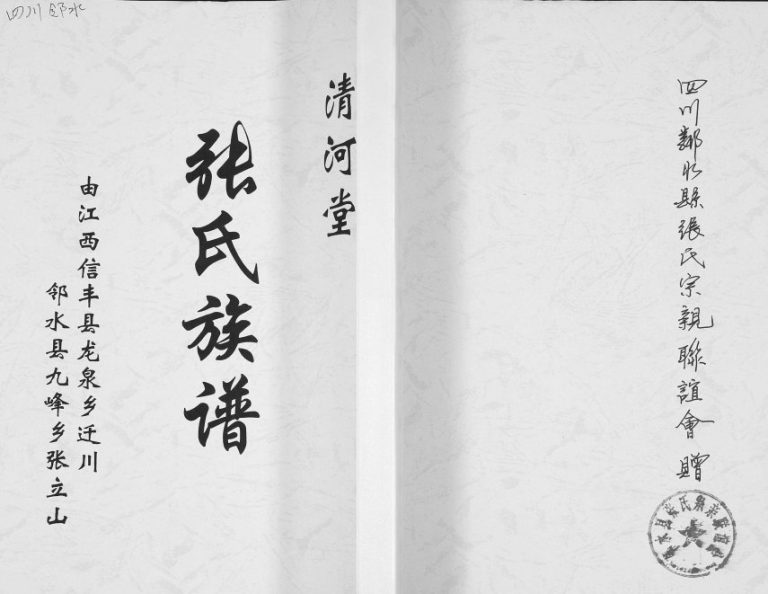 四川 邻水
清河堂
张氏族谱
由江西信丰县龙泉乡迁川
邻水县九峰乡张立山
四川鄰水縣張氏宗親聯誼會 贈